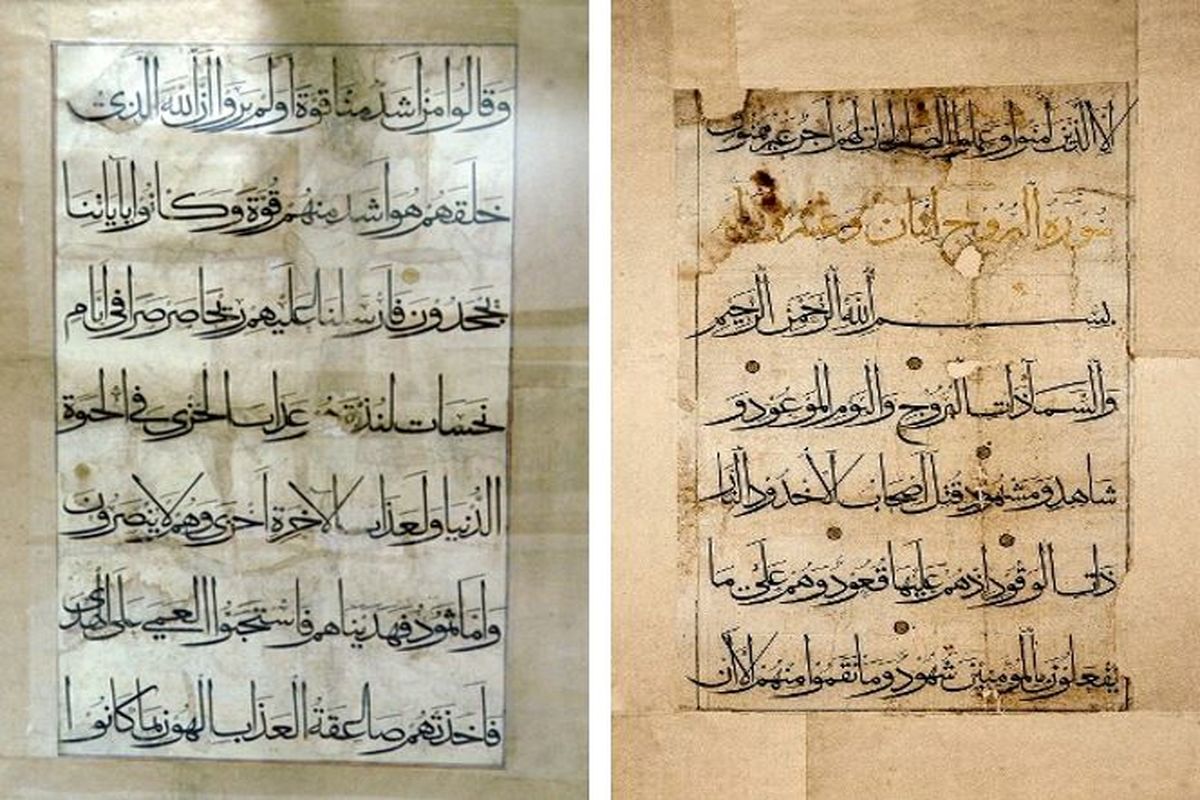 وقالوا من اشد منا قوة اولم يروا ان الله الذى
خلقهم هو اشد منهم قوة وكانوا باياتنا
يجحدون فارسلنا عليهم ريحا صرصرا فى ايام
نحسات لنذيقهم عذاب الخزى فى الحيوة
الدنيا ولعذاب الاخرة اخزى وهم لا ينصرون
واما ثمود فهديناهم فاستحبوا العمى على الهدى
فاخذتهم صاعقة العذاب الهون بما كانوا
الا الذين امنوا وعملوا الصالحات لهم اجر غير ممنون
سورة البروج اثنان وعشرون
بسم الله الرحمن الرحيم
والسماء ذات البروج واليوم الموعود و
شاهد ومشهود قتل اصحاب الاخدود النار
ذات الوقود اذ هم عليها قعود وهم على ما
يفعلون بالمؤمنين شهود وما نقموا منهم الا ان